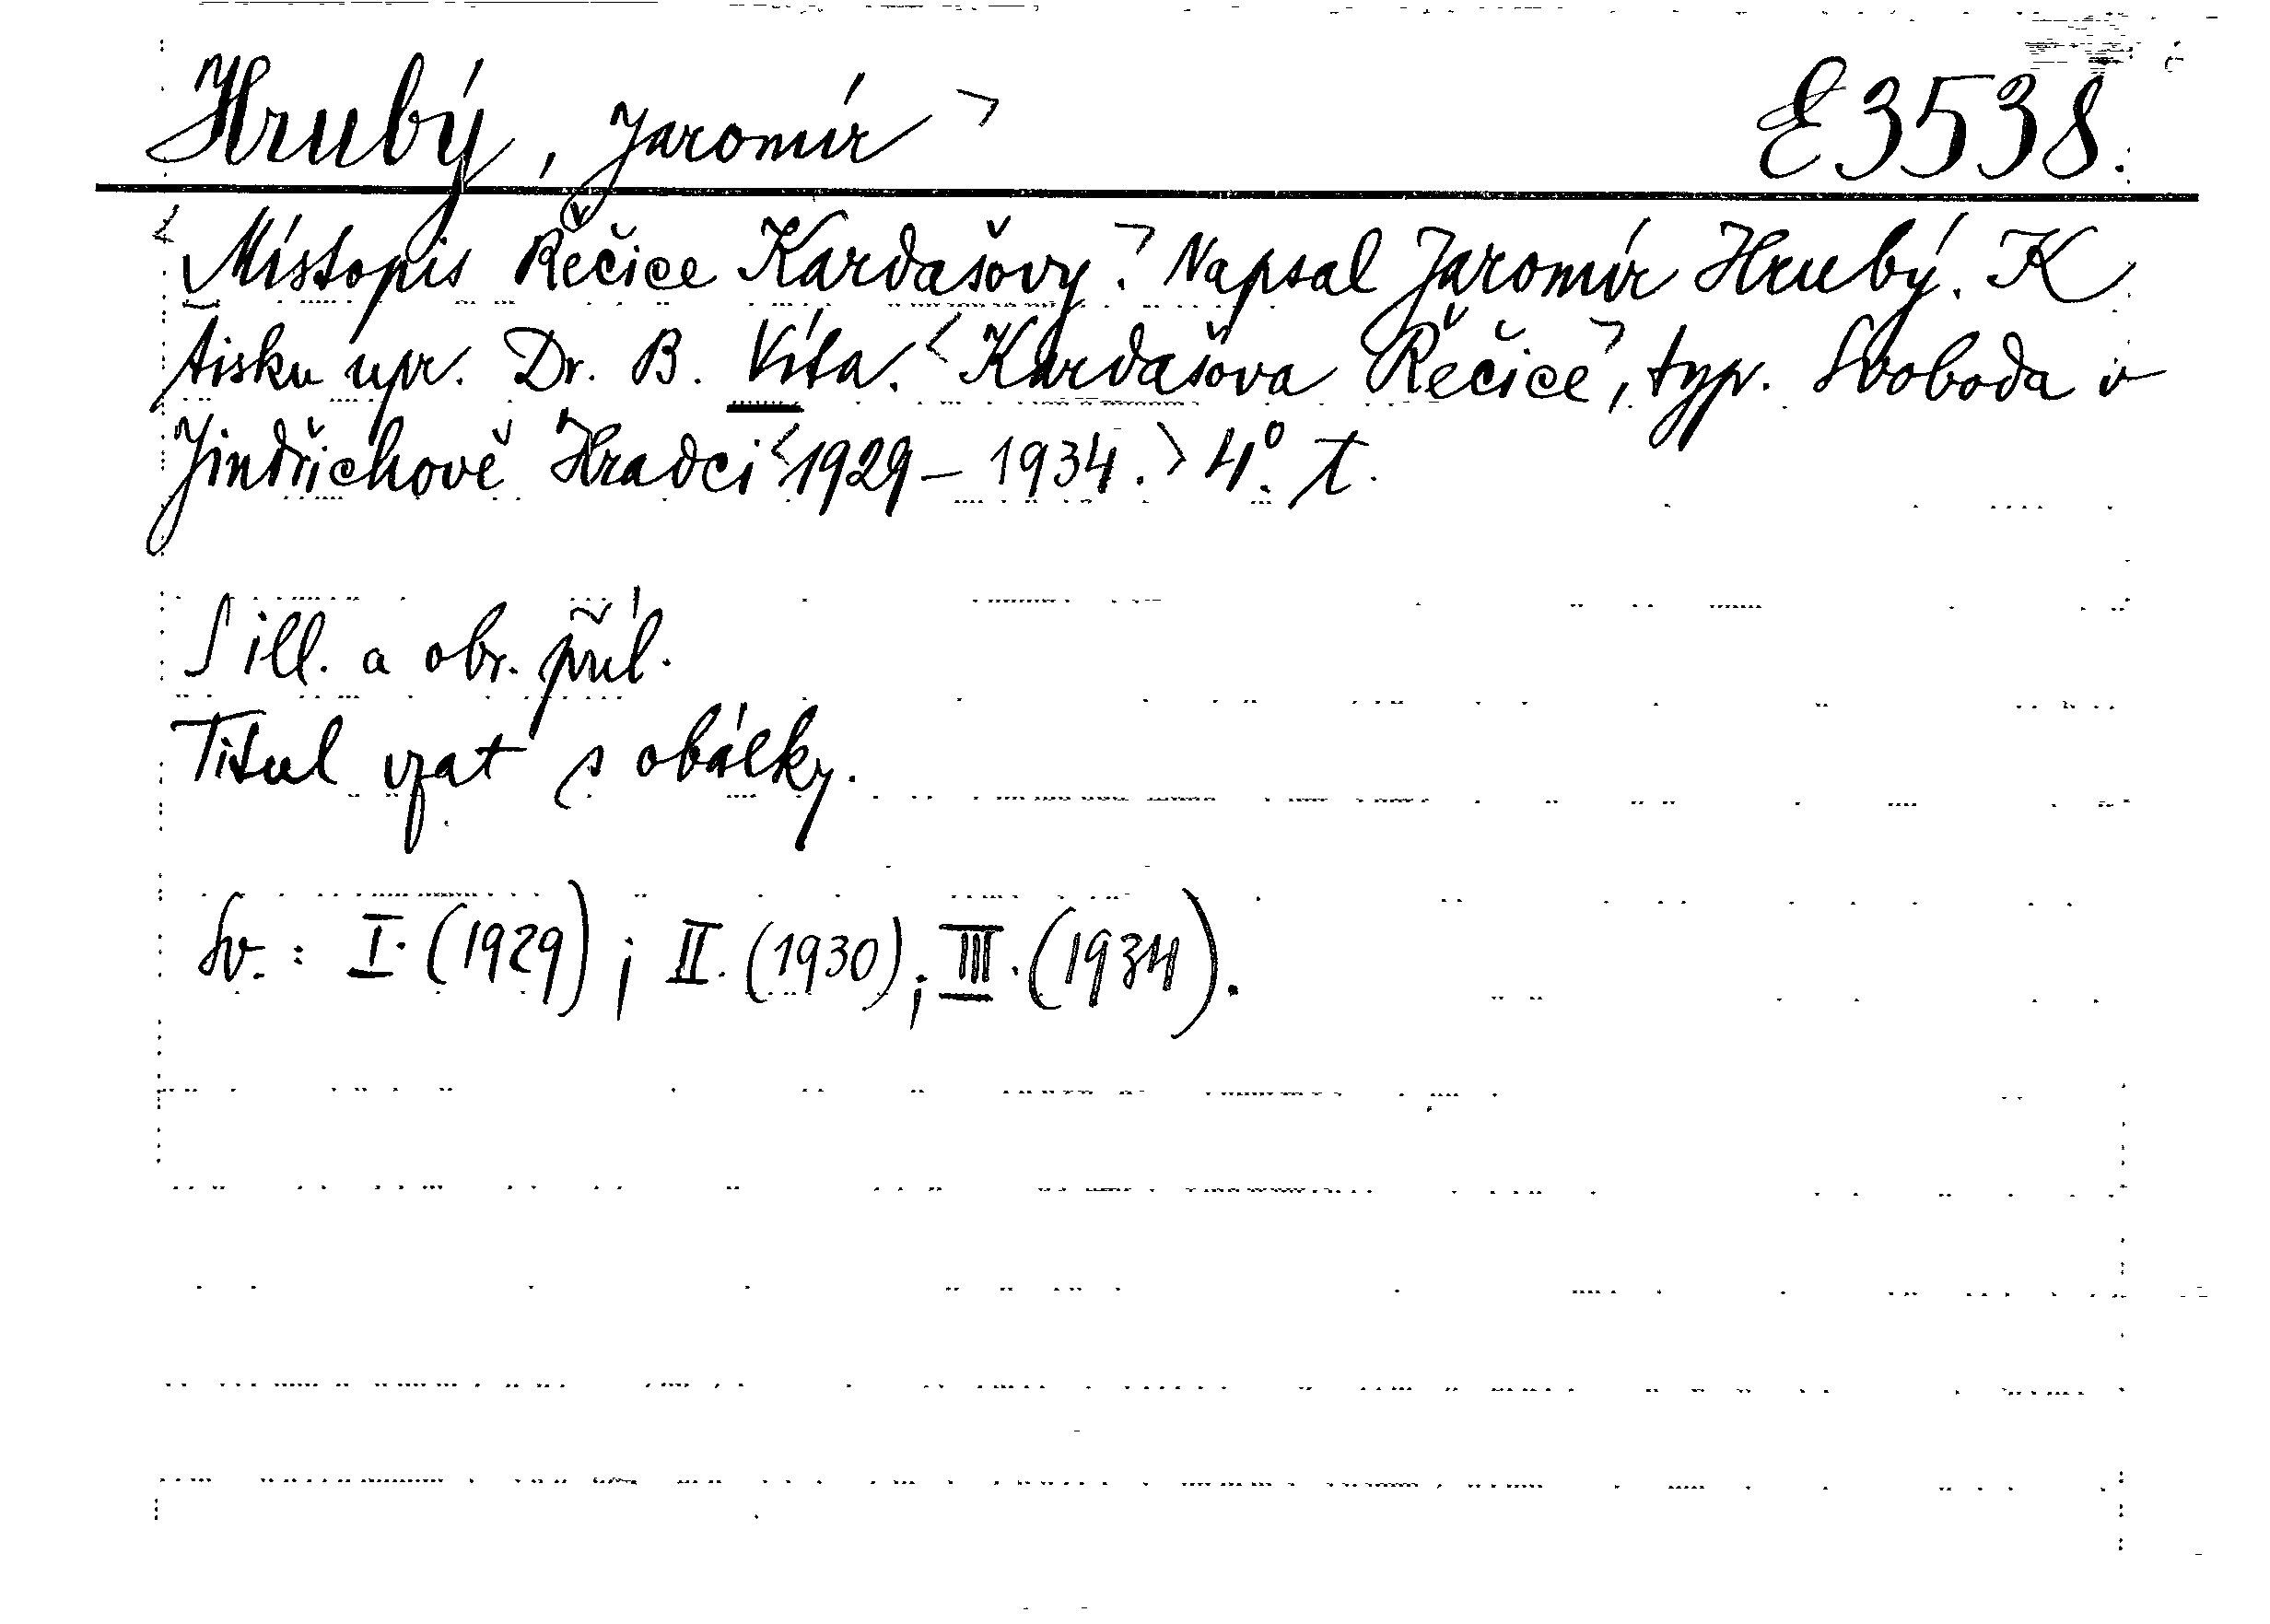 Hrubý, Jaromír E 3538.
Místopis Řečice Kardašovy. Napsal Jaromír Hrubý. K
tisku upr. Dr. B. Víta. Kardašova Řečice, typ. Svoboda v
Jindřichově Hradci 1929 – 1934. 4°. T.
S ill. a obr. příl.
Titul vzat s obálky.
Sv.: I. (1929); II. (1930); III. (1934).